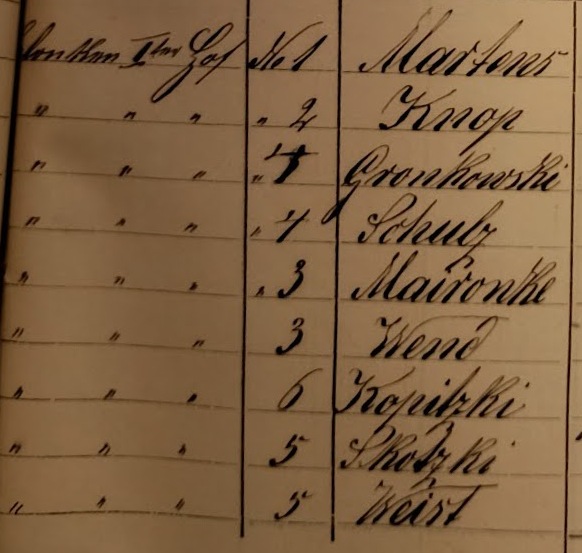 Iter Hof № 1 Martens
" " " " 2 Knop
" " " " 4 Gronkowski
" " " " 4 Schulz
" " " " 3 Maironke
" " " 3 Wend
" " " 6 Kopitzki
" " " 5 Skotzki
" " " 5 Weist